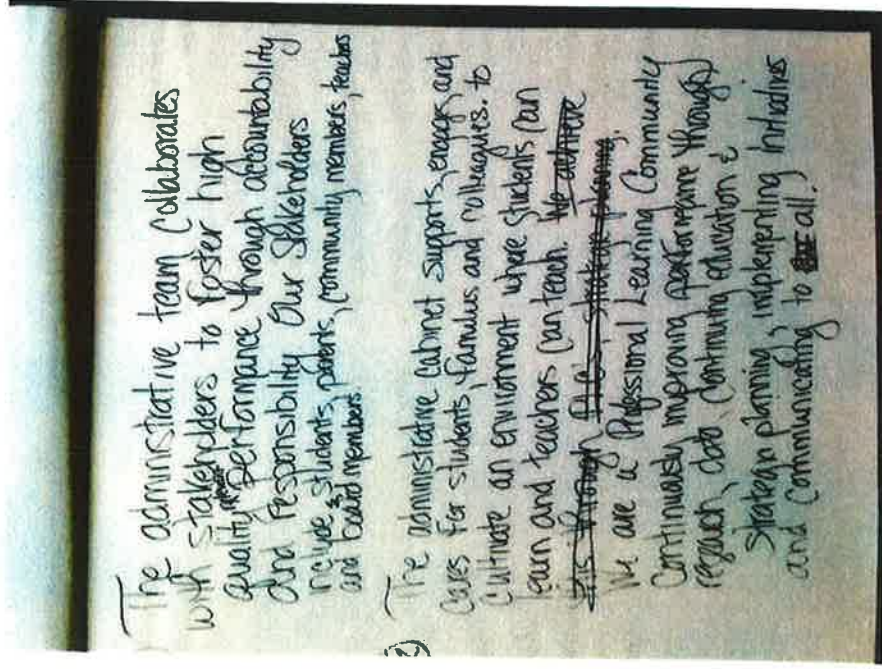 The administrative team Collaborates
with stakeholders to foster high
quality performance through accountability
and responsibility Our Stakeholders
include students, parents, community members, teachers
and board members.
The administrative cabinet supports, engages, and
cares for students, families and colleagues. to
cultivate an environment where students can
learn and teachers can teach. We achieve
this through PLC's, strategic planning.
We are a Professional Learning Community
Continuously improving performance through
research, data, continuing education &
strategic planning, implementing initiatives
and communicating to all.